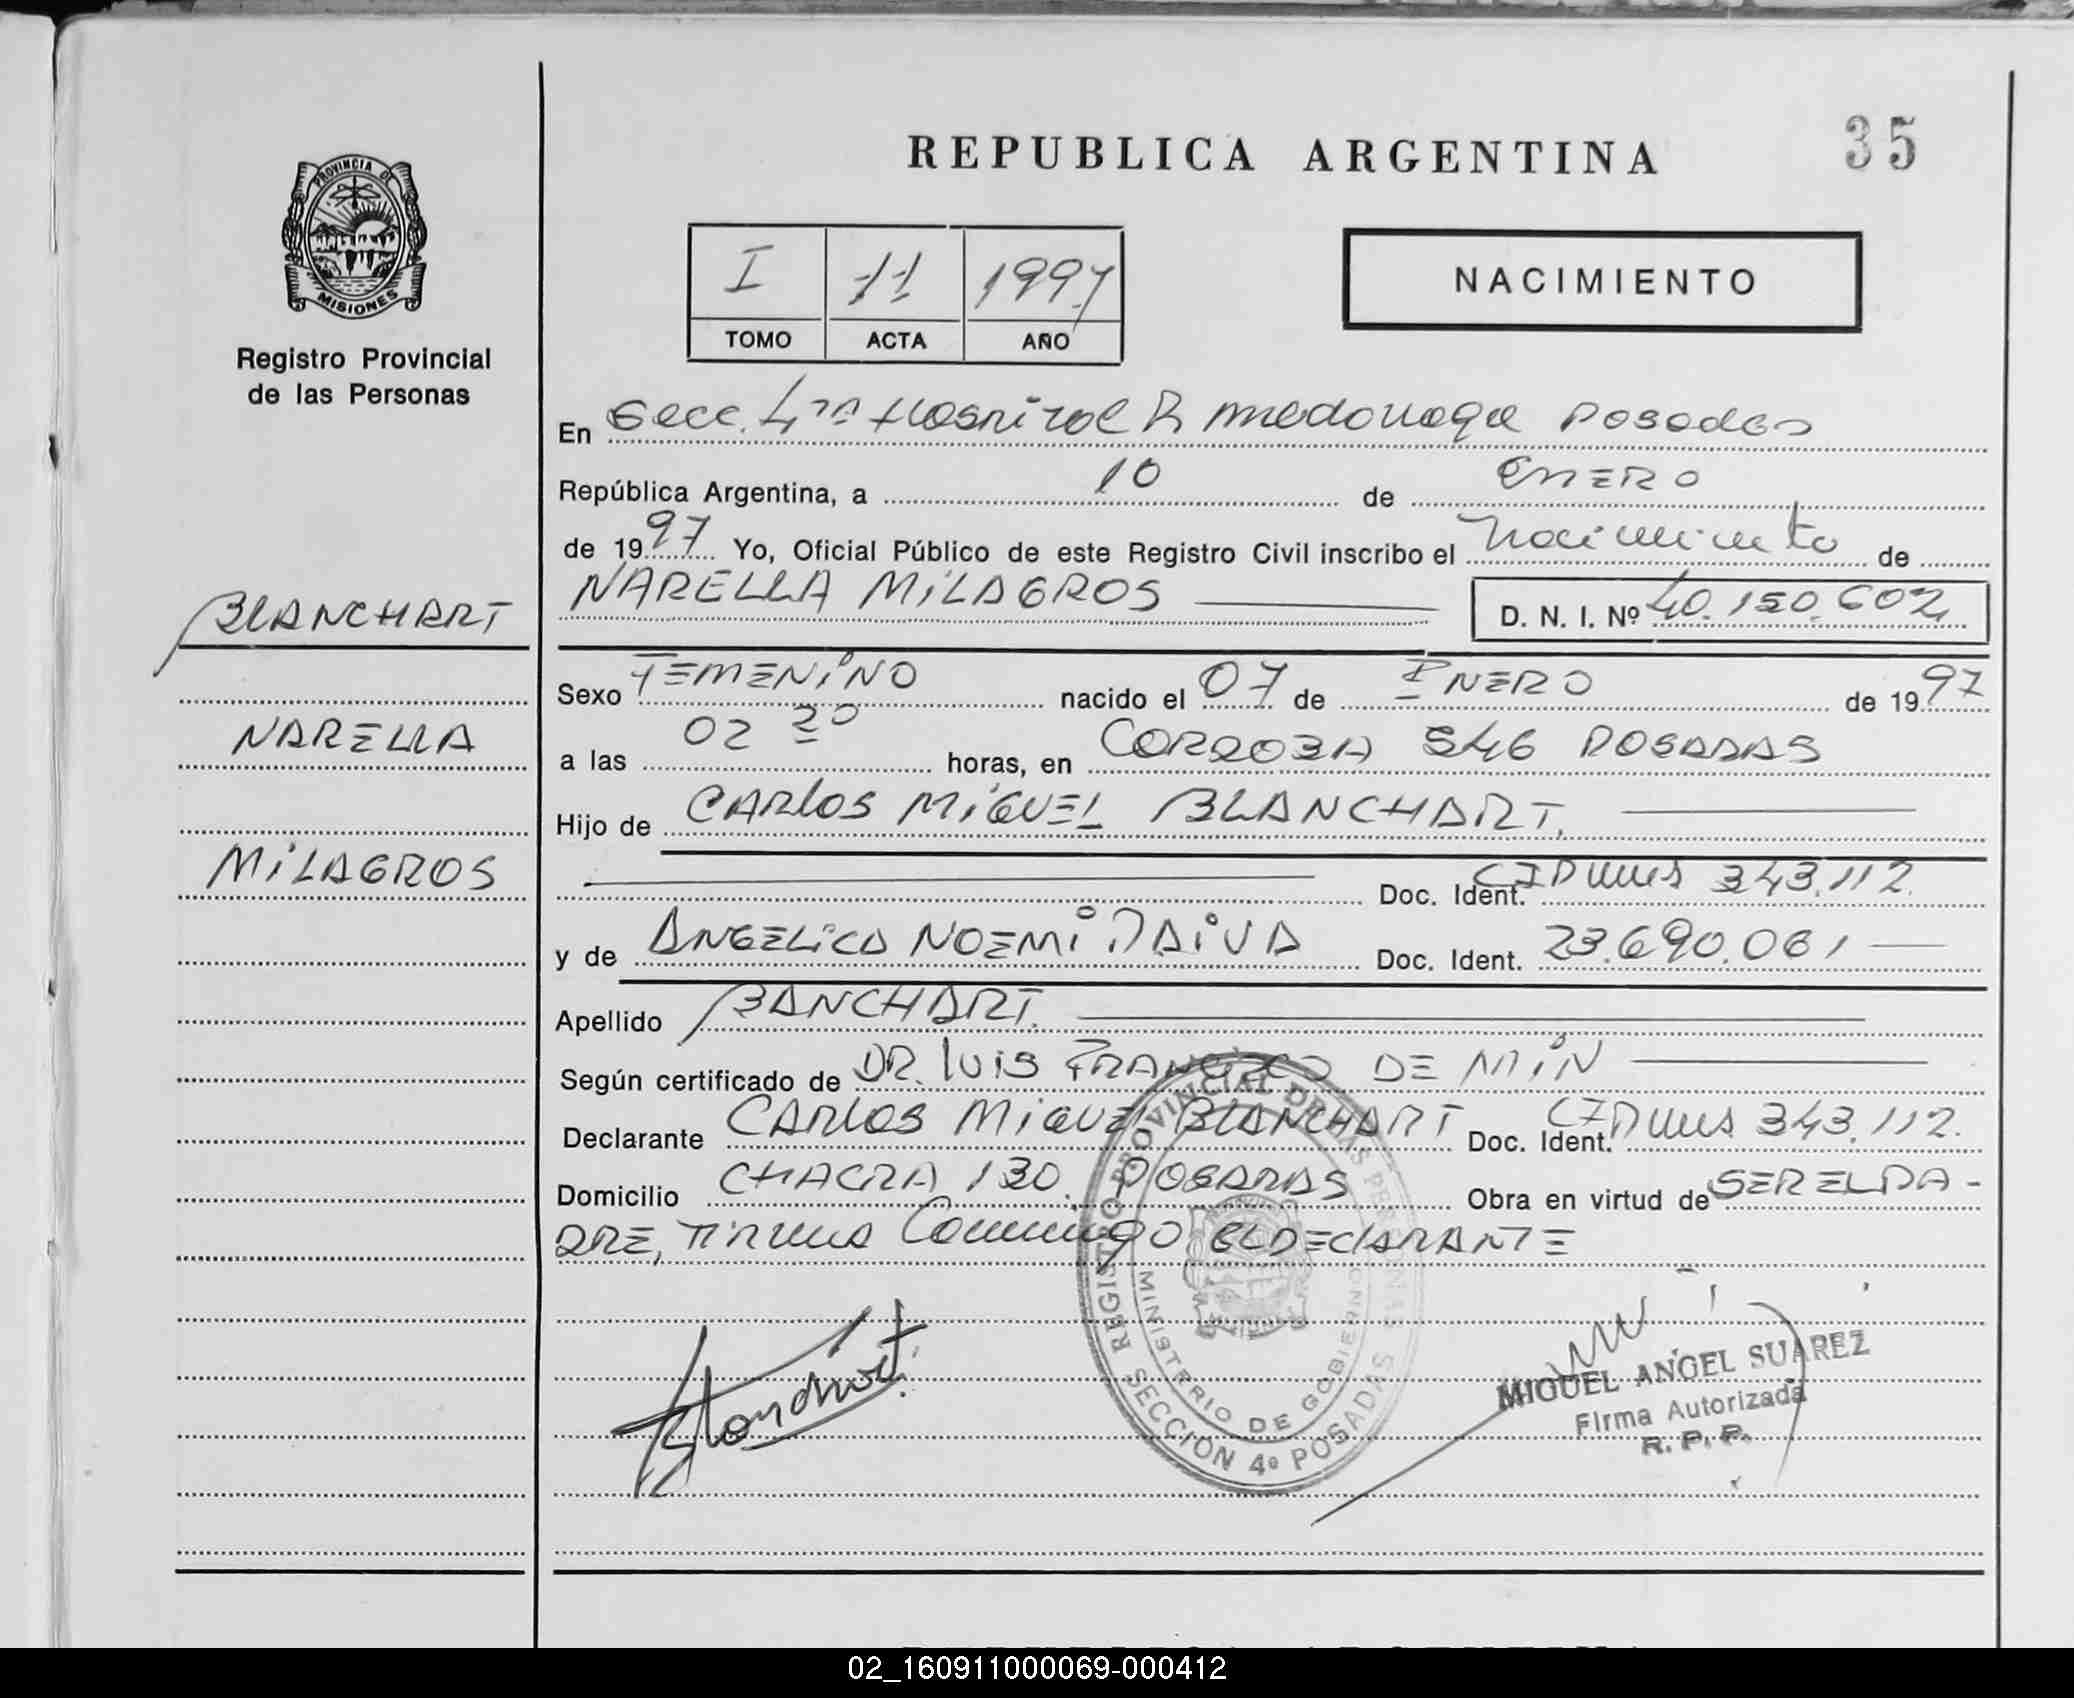 REPUBLICA ARGENTINA
35
PROVINCIA DE
MISIONES
Registro Provincial
de las Personas
I 11 1997
TOMO ACTA AÑO
NACIMIENTO
En Secc. 4ta Hospital R. Madariaga Posadas
República Argentina, a 10 de ENERO
de 1997 Yo, Oficial Público de este Registro Civil inscribo el Nacimiento de
NARELLA MiLAGROS
D. N. I. Nº 40.150.602
BLANCHART
NARELLA
MiLAGROS
Sexo FEMENiNO nacido el 07 de ENERO de 1997
a las 02 20 horas, en CORDOBA 546 POSADAS
Hijo de CARLOS MiGUEL BLANCHART.
Doc. Ident. 343.112.
y de ANGELiCA NOEMi Doc. Ident. 23.690.061
Apellido BANCHART.
Según certificado de DR. LUiS FRANCISCO DE MiN
Declarante CARLOS MiGUEL BLANCHART Doc. Ident. 343.112.
Domicilio CHACRA 130. POSADAS Obra en virtud de SER EL PA-
DRE, Firma Conmigo EL DECLARANTE
REGISTRO PROVINCIAL DE LAS PERSONAS
MINISTERIO DE GOBIERNO
SECCION 4ª POSADAS
Blanchart.
MIGUEL ANGEL SUAREZ
Firma Autorizada
R. P. P.
02_160911000069-000412